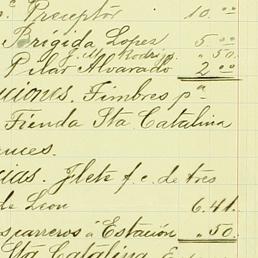 Preceptor 10.00
Brígida Lopez 5.00
J. M. Rodrig. " .50
Pilar Alvarado 2.00
ciones. Timbres pa
Tienda Sta Catalina
ances.
cias. Flete f. c. de tres
de Leon 6.41.
carreros á Estación " .50.
Sta Catalina